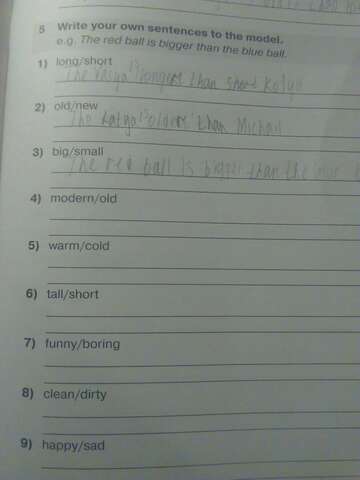 5 Write your own sentences to the model.
e.g. The red ball is bigger than the blue ball.
1) long/short
The longer than short Kolya
2) old/new
The Katya is older than Michail
3) big/small
The red ball is bigger than the
4) modern/old
5) warm/cold
6) tall/short
7) funny/boring
8) clean/dirty
9) happy/sad